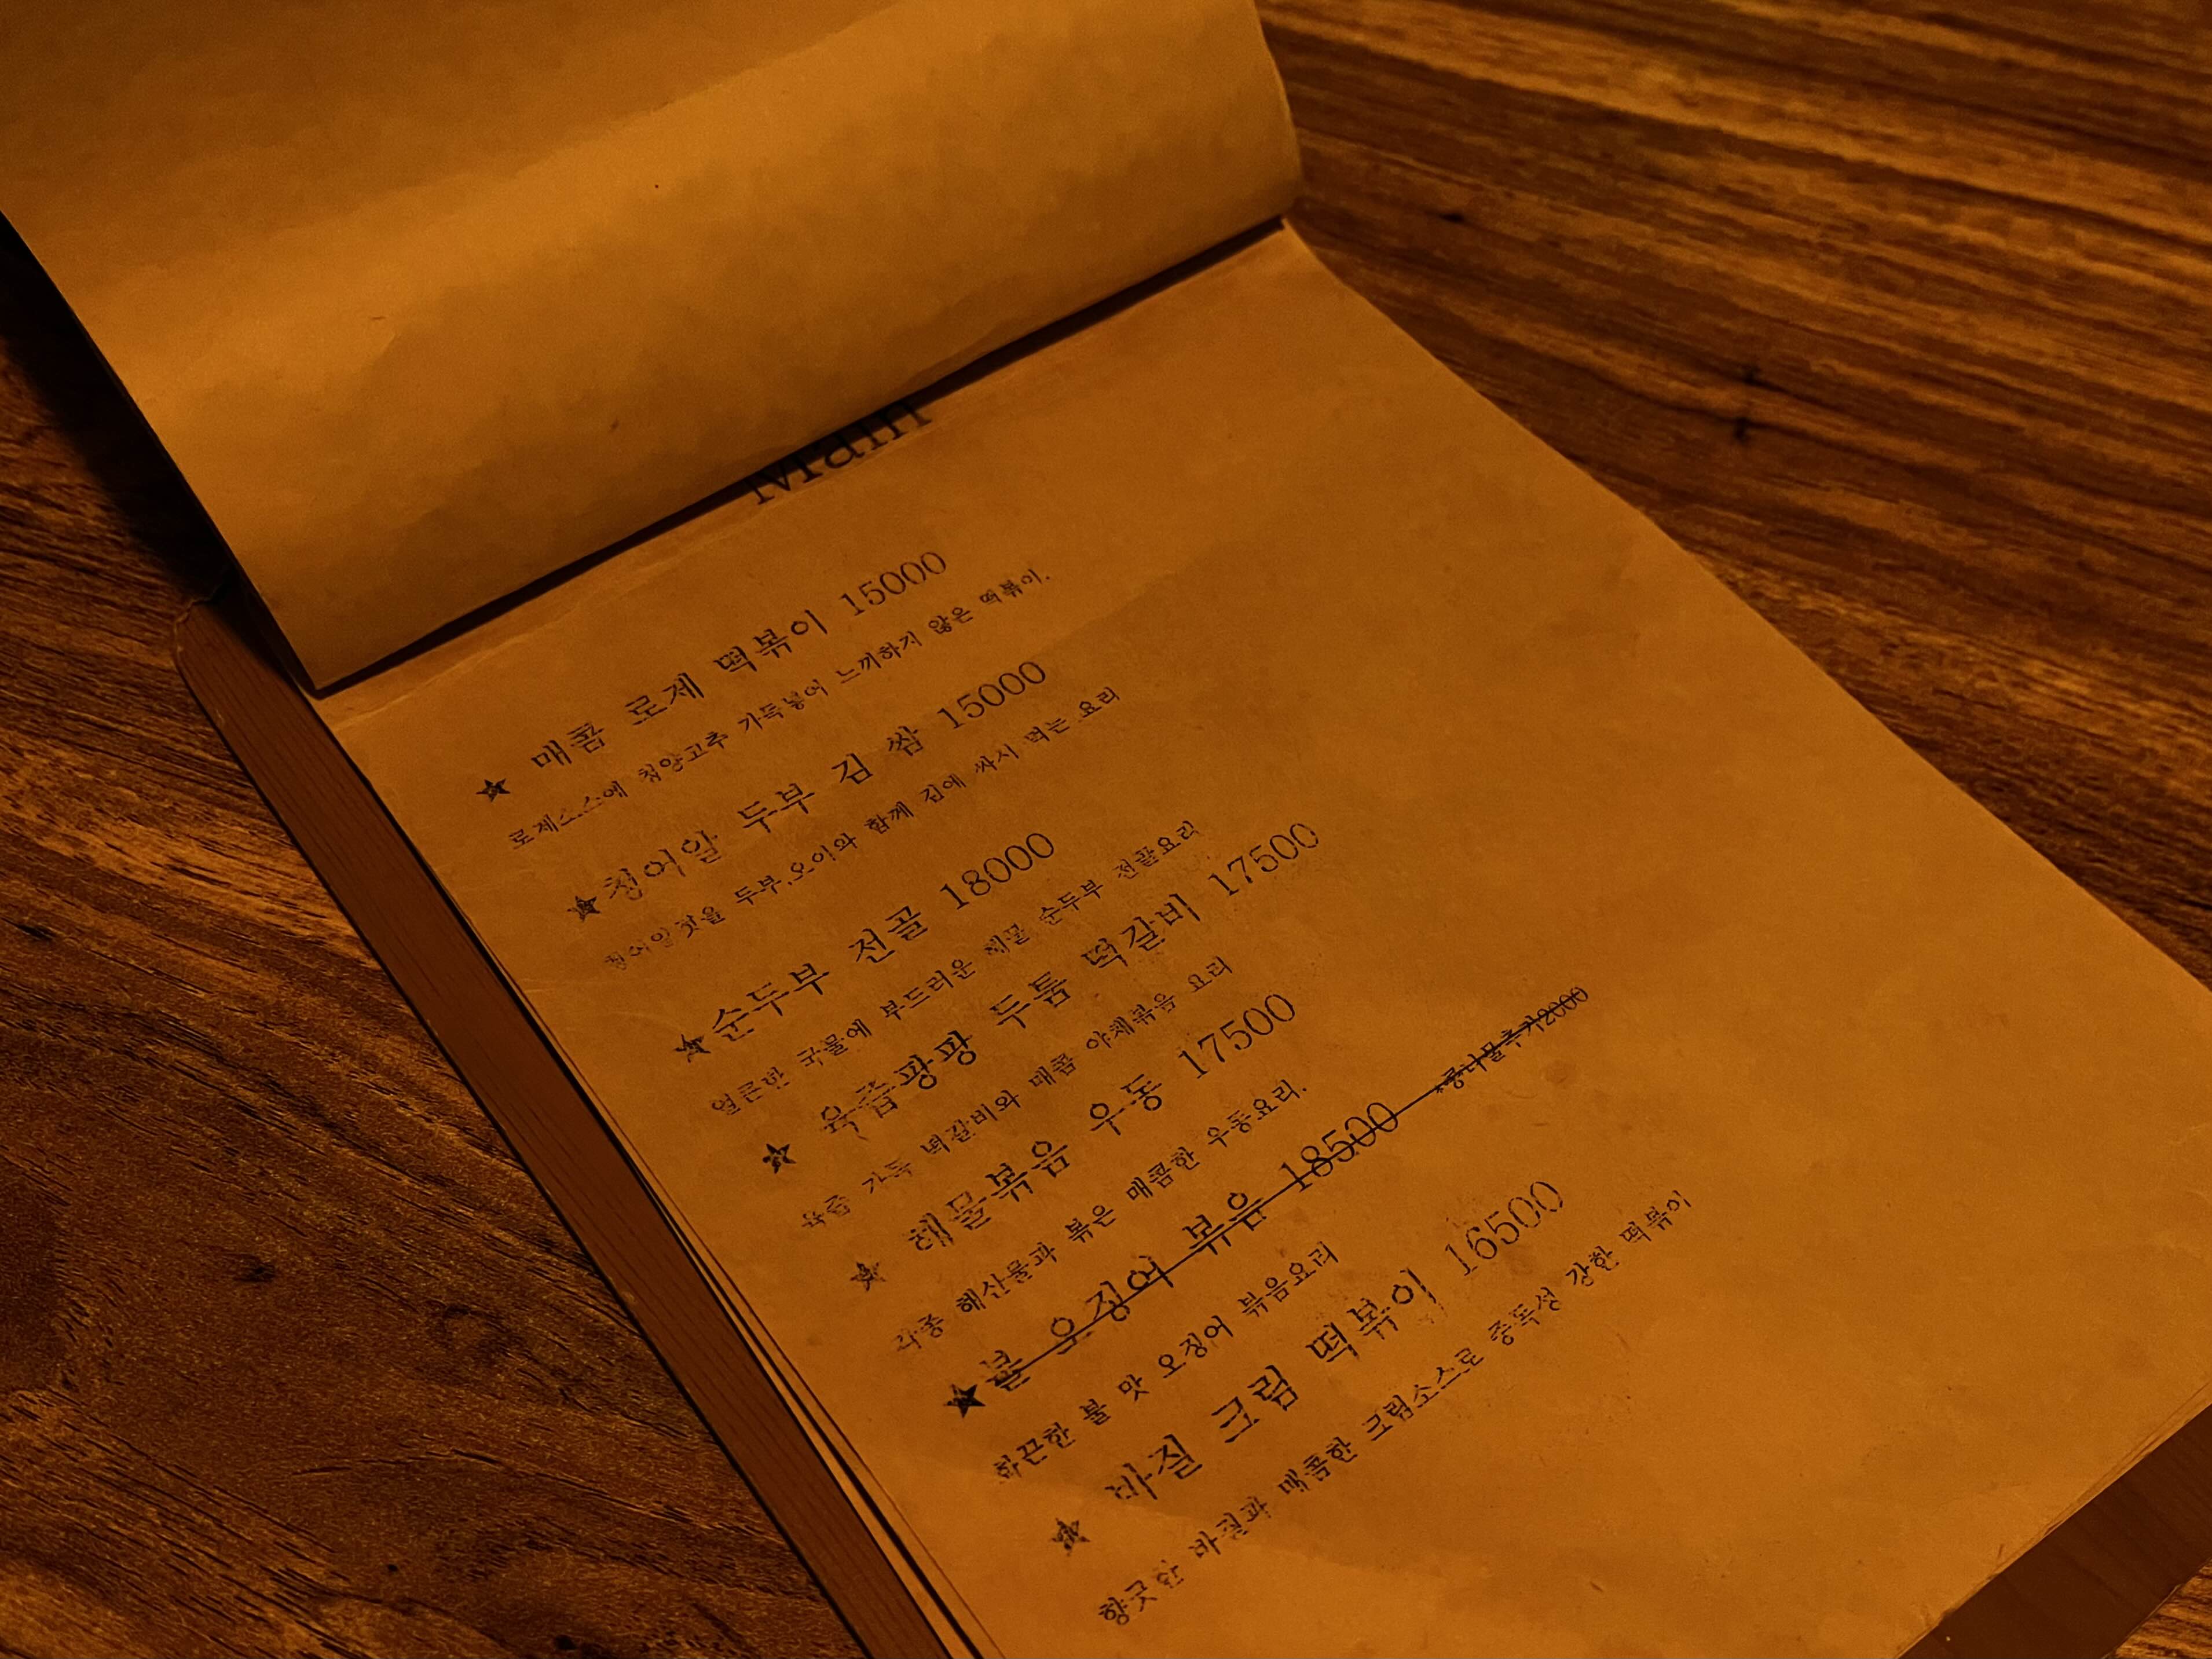 Main
★ 매콤 로제 떡볶이 15000
로제소스에 청양고추 가득넣어 느끼하지 않은 떡볶이.
★청어알 두부 김 쌈 15000
청어알젓을 두부,오이와 함께 김에 싸서 먹는 요리
★순두부 전골 18000
얼큰한 국물에 부드러운 해물 순두부 전골요리
★ 육즙팡팡 두툼 떡갈비 17500
육즙 가득 떡갈비와 매콤 야채볶음 요리
★ 해물볶음 우동 17500
각종 해산물과 볶은 매콤한 우동요리.
★불 오징어 볶음 18500 *콩나물추가2000
화끈한 불 맛 오징어 볶음요리
★ 바질 크림 떡볶이 16500
향긋한 바질과 매콤한 크림소스로 중독성 강한 떡볶이